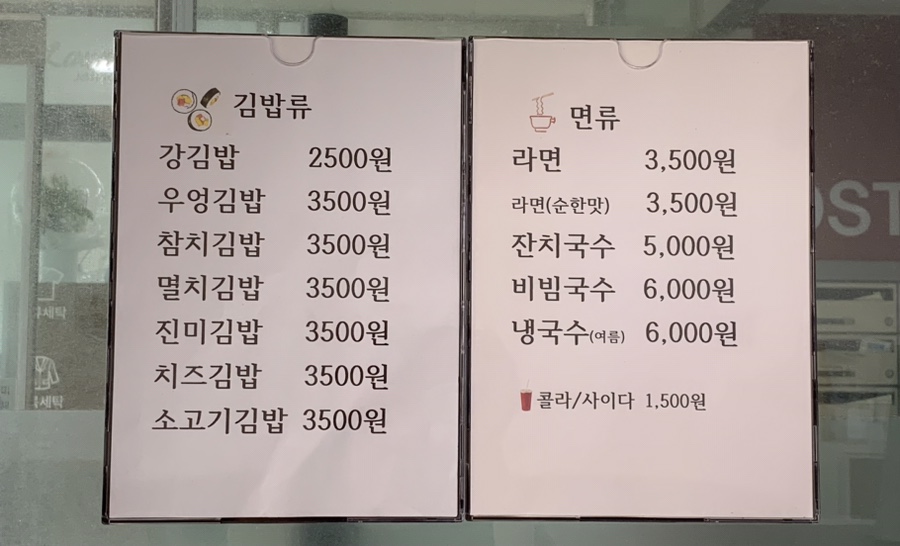 김밥류
강김밥 2500원
우엉김밥 3500원
참치김밥 3500원
멸치김밥 3500원
진미김밥 3500원
치즈김밥 3500원
소고기김밥 3500원
면류
라면 3,500원
라면(순한맛) 3,500원
잔치국수 5,000원
비빔국수 6,000원
냉국수(여름) 6,000원
콜라/사이다 1,500원
OST
세탁
세탁